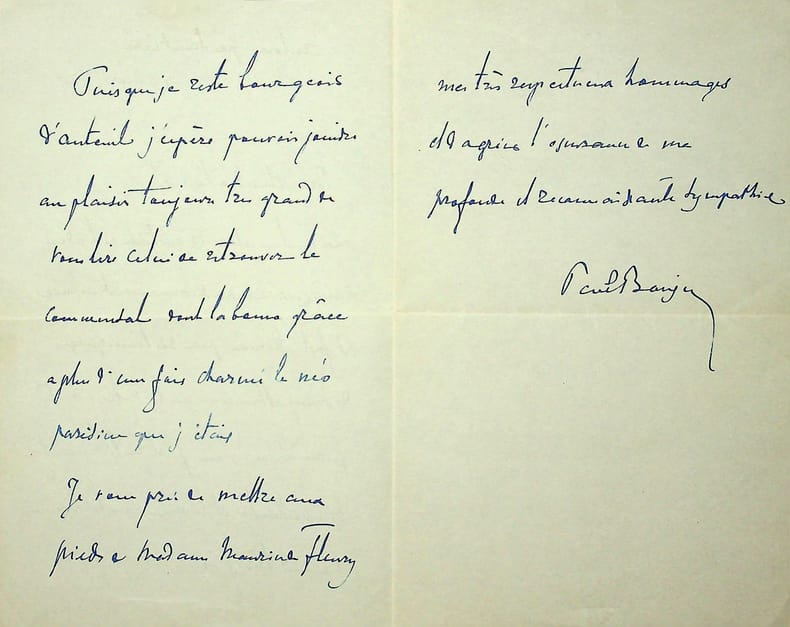 Puisque je reste bourgeois
d'auteuil j'espère pouvoir joindre
au plaisir toujours très grand de
vous lire celui de retrouver le
commensal dont la bonne grâce
a plus d'une fois charmé le néo
parisien que j'étais
Je vous prie de mettre aux
pieds de Madame Maurice de Fleury
mes très respectueux hommages
et d'agréer l'assurance de ma
profonde et reconnaissante sympathie
Paul